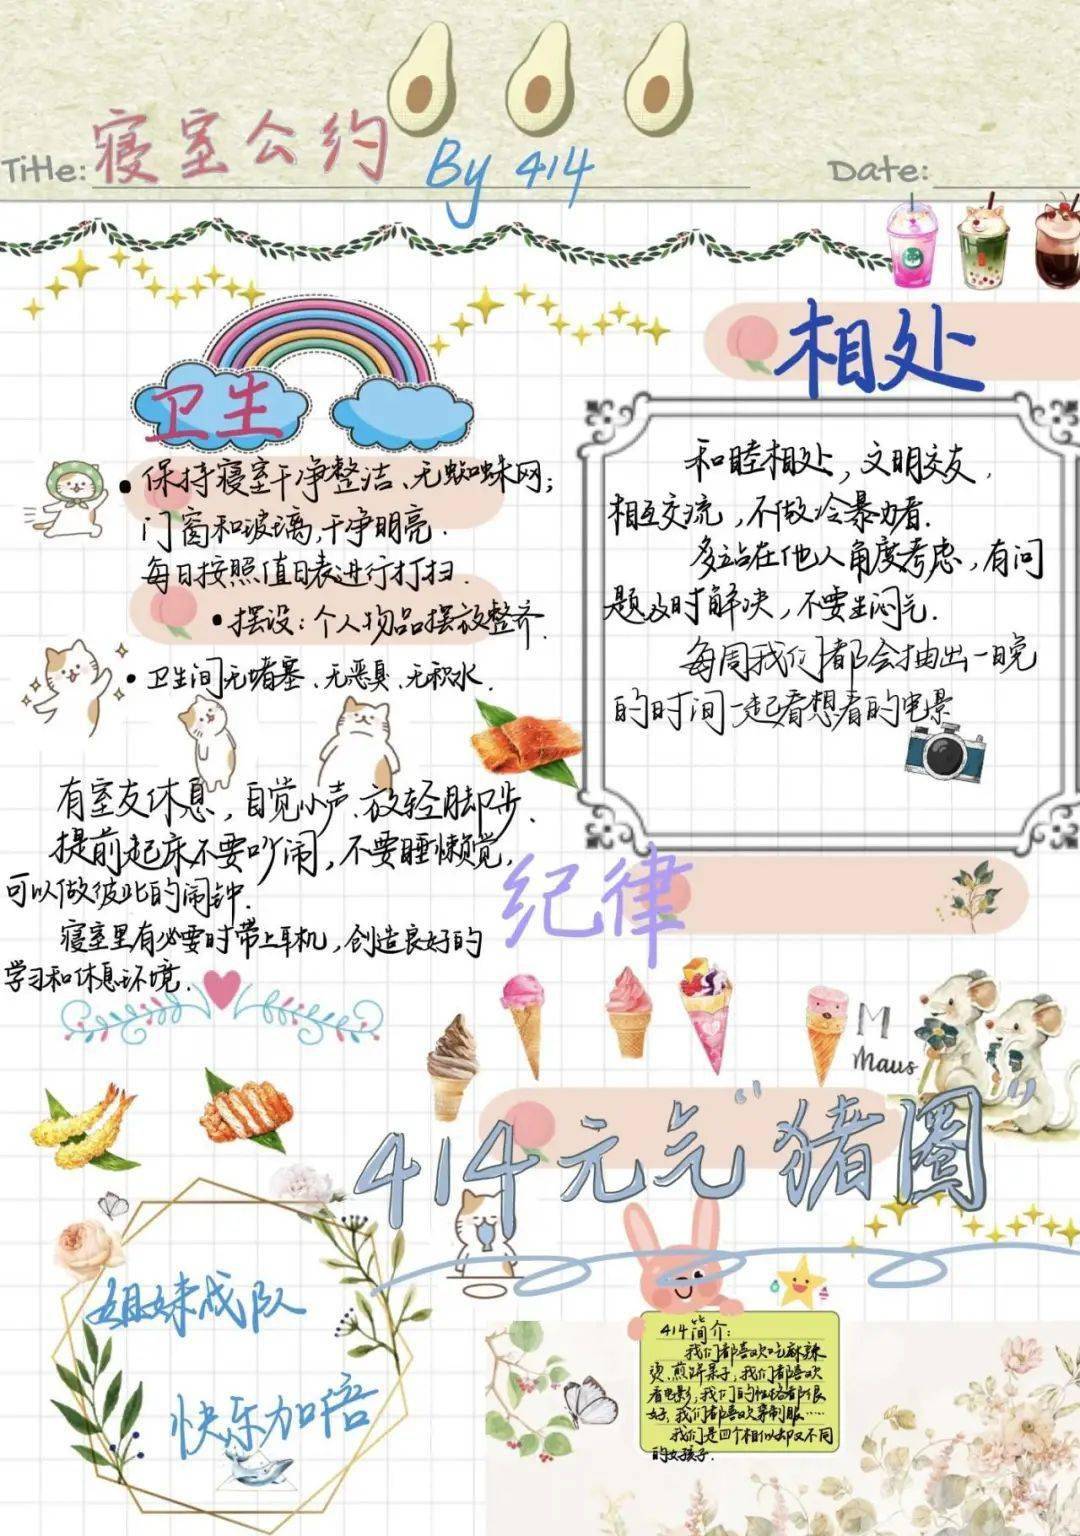 Title: 寝室公约 By 414
Date:
卫生
保持寝室干净整洁、无蜘蛛网;
门窗和玻璃,干净明亮.
每日按照值日表进行打扫.
摆设:个人物品摆放整齐.
卫生间无堵塞、无恶臭、无积水.
相处
和睦相处,文明交友,
相互交流,不做冷暴力者.
多站在他人角度考虑,有问
题及时解决,不要生闷气.
每周我们都会抽出一晚
的时间一起看想看的电影
有室友休息,自觉小声、放轻脚步.
提前起床不要吵闹,不要睡懒觉,
可以做彼此的闹钟.
寝室里有必要时带上耳机,创造良好的
学习和休息环境.
纪律
M
Maus
414元气“猪圈”
姐妹战队
快乐加倍
414简介:
我们都喜欢吃麻辣
烫、煎饼果子,我们都喜欢
看电影,我们的性格都很
好,我们都喜欢穿制服……
我们是四个相似却又不同
的女孩子.